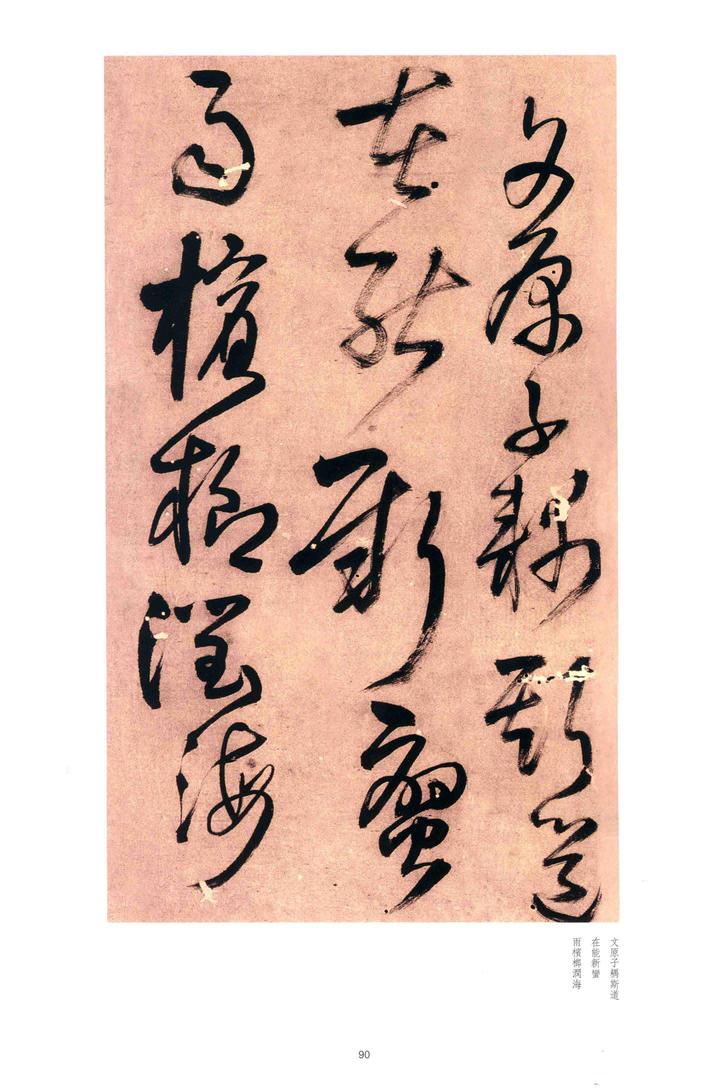 文原子耦斯道
在能新蠻
雨檳榔潤海
文原子耦斯道
在能新蠻
雨檳榔潤海
90